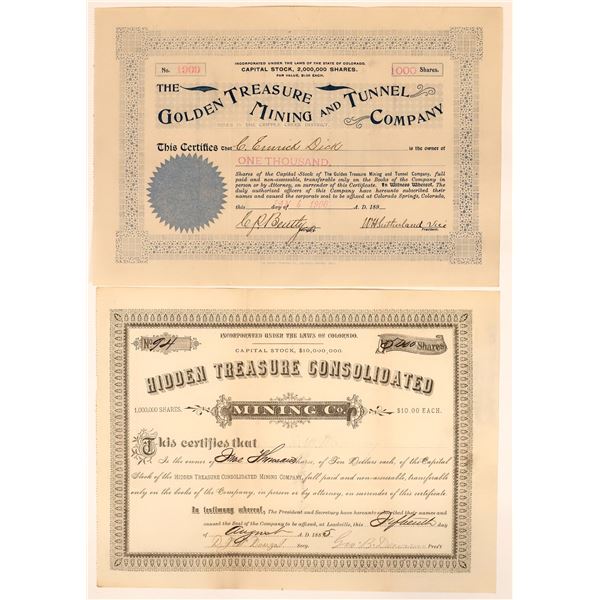 INCORPORATED UNDER THE LAWS OF THE STATE OF COLORADO.
CAPITAL STOCK, 2,000,000 SHARES.
PAR VALUE, $1.00 EACH.
No. 1909
1000 Shares.
THE GOLDEN TREASURE MINING AND TUNNEL COMPANY
MINES IN THE CRIPPLE CREEK DISTRICT.
This Certifies that C. Emrich Dick is the owner of
ONE THOUSAND,
Shares of the Capital Stock of The Golden Treasure Mining and Tunnel Company, full
paid and non-assessable, transferable only on the Books of the Company in
person or by Attorney, on surrender of this Certificate. In Witness Whereof, The
duly authorized officers of this Company have hereunto subscribed their
names and caused the corporate seal to be affixed at Colorado Springs, Colorado,
this day of 1900 A. D. 189
W H Sutherland Vice
President.
INCORPORATED UNDER THE LAWS OF COLORADO.
No 94
CAPITAL STOCK, $10,000,000.
Shares
HIDDEN TREASURE CONSOLIDATED
1,000,000 SHARES.
MINING CO.
$10.00 EACH.
This certifies that
Is the owner of Thousand Shares, of Ten Dollars each, of the Capital
Stock of the HIDDEN TREASURE CONSOLIDATED MINING COMPANY, full paid and non-assessable, transferable
only on the books of the Company, in person or by attorney, on surrender of this certificate.
In testimony whereof, The President and Secretary have hereunto subscribed their names and
caused the Seal of the Company to be affixed, at Leadville, this Fifteenth day
of August A.D. 1885
Secy.
Pres't